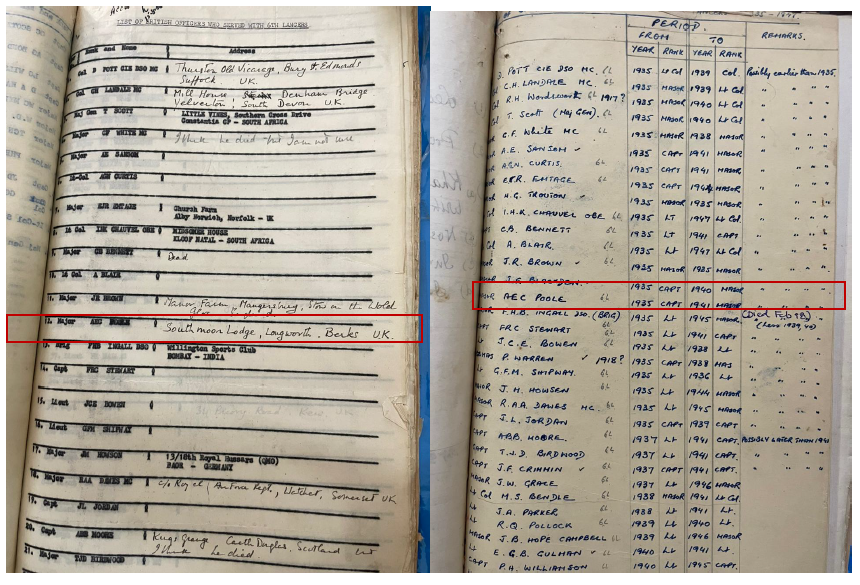 LIST OF BRITISH OFFICERS WHO SERVED WITH 6TH LANCERS
Rank and Name Address
Col D POTT CIE DSO MC Thurston Old Vicarage, Bury St. Edmunds
Suffolk U.K.
Col CH LANDALE MC Mill House Denham Bridge
Yelverton, South Devon U.K.
Maj Gen T SCOTT LITTLE VINES, Southern Cross Drive
Constantia CP - SOUTH AFRICA
Major CF WHITE MC I think he died but I am not sure
Major AE SANSOM
Lt-Col AGN CURTIS
7. Major EJR EMTAGE Church Farm
Alby Norwich, Norfolk - UK
8. Lt Col IHK CHAUVEL OBE MIDSOMER HOUSE
KLOOF NATAL - SOUTH AFRICA
9. Major CB BENNETT Dead
10. Lt Col A BLAIR
11. Major JR BROWN Manor Farm, Maugersbury, Stow on the Wold
12. Major Southmoor Lodge, Longworth. Berks UK.
13. Brig FHB INGALL DSO Willington Sports Club
BOMBAY - INDIA
14. Capt FRC STEWART
15. Lieut JCE BOWEN
16. Lieut GFM SHIPWAY
17. Major JM HOWSON 13/18th Royal Hussars (QMO)
BAOR - GERMANY
18. Major RAA DAWES MC c/o Royal, Watchet, Somerset UK
19. Capt JL JORDAN
20. Capt ABB MOORE Castle Douglas, Scotland but
I think he died.
21. Major TJD BIRDWOOD
PERIOD.
FROM TO REMARKS.
YEAR RANK YEAR RANK
D. POTT CIE DSO MC. 6L 1935 Lt Col 1939 Col. Possibly earlier than 1935.
C.H. LANDALE MC. 6L 1935 MAJOR 1939 Lt Col " " "
R.H. Wordsworth 6L 1917? 1935 MAJOR 1940 Lt Col " " "
T. Scott (Maj GEN). 6L 1935 MAJOR 1940 Lt Col " " "
C.F. White MC 6L 1935 MAJOR 1938 MAJOR " " "
A.E. SANSOM ✓ 1935 CAPT 1941 MAJOR " " "
AGN. CURTIS. 6L 1935 CAPT 1941 MAJOR " " "
EJR. EMTAGE 6L 1935 CAPT MAJOR " " "
H.G. TROUTON ✓ 1935 MAJOR 1935 MAJOR " " "
I.H.K. CHAUVEL OBE 6L 1935 LT 1947 Lt Col " " "
C.B. BENNETT 6L 1935 LT 1941 CAPT " " "
A. BLAIR. 6L 1935 Lt 1947 Lt Col " " "
J.R. BROWN ✓ 6L 1935 MAJOR 1935 MAJOR " " "
1935 CAPT 1940 MAJOR " " "
AEC POOLE 6L 1935 CAPT 1941 MAJOR " " "
F.H.B. INGALL DSO. (BRIG) 6L 1935 Lt 1945 MAJOR (Died Feb 98)
FRC STEWART 6L 1935 Lt 1941 CAPT. " " "
J.C.E. BOWEN 6L 1935 Lt 1938 Lt " " "
P. WARREN ✓ 1918? 1935 CAPT 1938 MAJ " " "
G.F.M. SHIPWAY. 6L 1935 Lt 1936 Lt " " "
J.M. HOWSON. 6L 1935 Lt 1944 MAJOR " " "
R.AA. DAWES MC. 6L 1935 Lt 1945 MAJOR " " "
J.L. JORDAN 6L 1935 CAPT 1939 CAPT " " "
6L 1937 Lt 1941 CAPT. POSSIBLY LATER THAN 1941
T.J.D BIRDWOOD 6L 1937 Lt 1941 CAPT. " " "
J.F. CRIMMIN ✓ 6L 1937 CAPT 1941 CAPT. " " "
J.W. GRACE 1937 Lt 1946 MAJOR
M.S. BENDLE 6L 1938 MAJOR 1941 Lt Col.
J.A. PARKER 6L 1938 Lt 1941 Lt.
R.Q. POLLOCK 6L 1939 Lt 1940 Lt.
J.B. HOPE CAMPBELL 6L 1939 Lt 1946 MAJOR
E.G.B. GULMAN ✓ 6L 1940 Lt 1941 Lt.
P.H. WILLIAMSON 1940 Lt 1945 CAPT